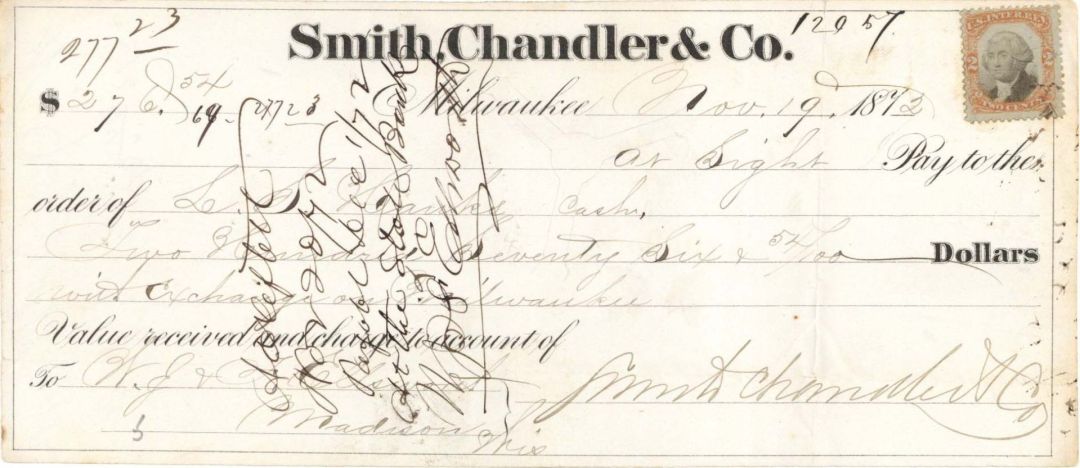 277 23
Smith, Chandler & Co.
12957
U.S. INTER. REV.
2 2
TWO CENTS
$ 276.54 69 277 23 Milwaukee Nov. 19, 1872
At Sight Pay to the
order of L. S. Hanks Cash,
Two Hundred Seventy Six & 54/100 Dollars
with exchange on Milwaukee
Value received and charge to account of
To W. J. & Smith Chandler & Co
Madison Wis
Accepted
Nov 20/72
Payable Dec 1/72
At the State Bank
W. J. Ellsworth